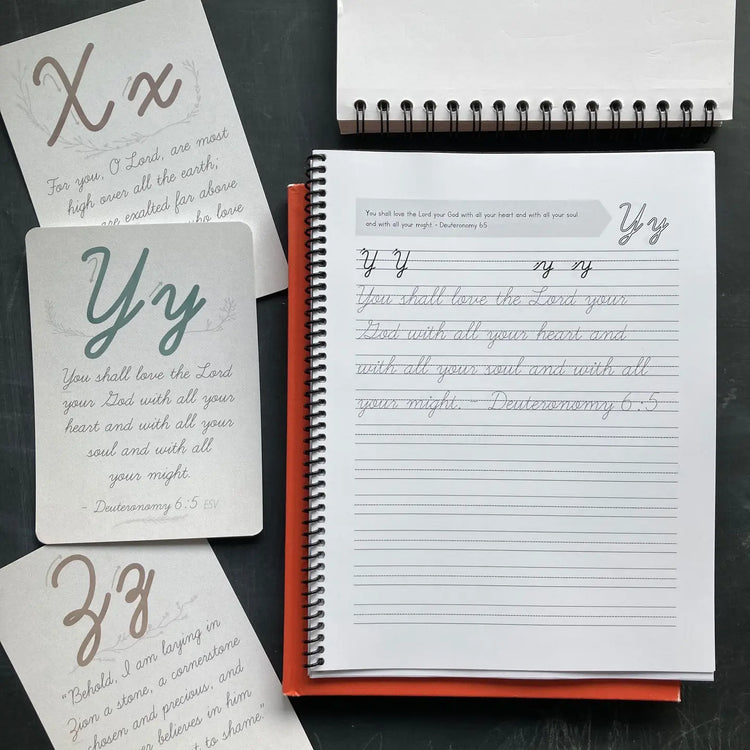 X x
For you, O Lord, are most
high over all the earth;
are exalted far above
who love
Y y
You shall love the Lord
your God with all your
heart and with all your
soul and with all
your might.
- Deuteronomy 6:5 ESV
Z z
"Behold, I am laying in
Zion a stone, a cornerstone
chosen and precious, and
believes in him
to shame."
You shall love the Lord your God with all your heart and with all your soul
and with all your might. - Deuteronomy 6:5
Y y
Y Y y y
You shall love the Lord your
God with all your heart and
with all your soul and with all
your might. - Deuteronomy 6:5